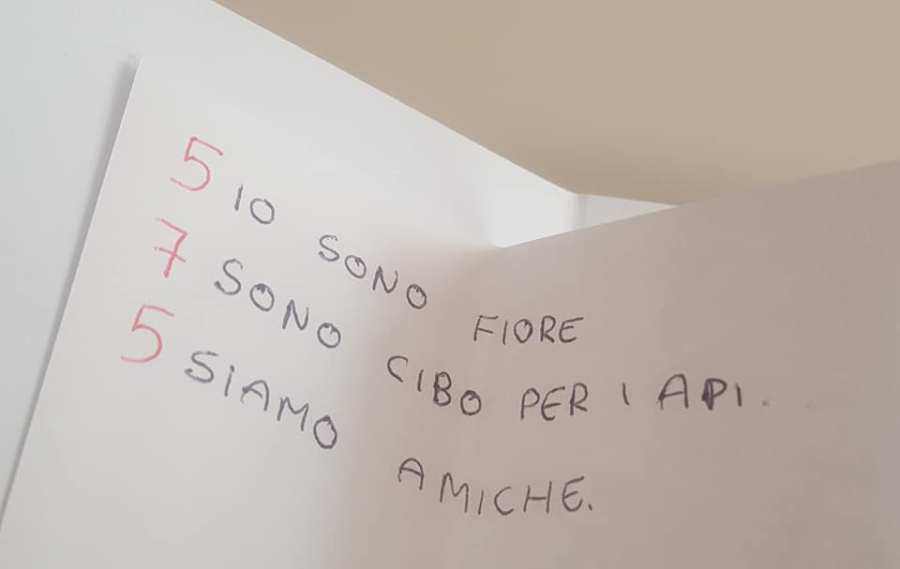 5 IO SONO FIORE
7 SONO CIBO PER I API.
5 SIAMO AMICHE.